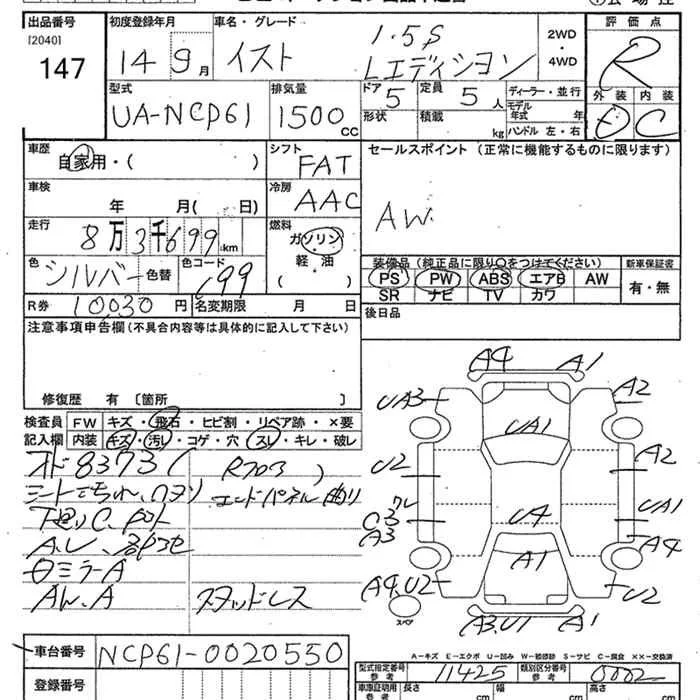 出品番号
[2040]
147
初度登録年月
14 9月
車名・グレード
イスト
1.5S
Lエディション
2WD
・
4WD
評価点
R
外装 内装
D C
型式
UA-NCP61
排気量
1500 CC
ドア 5
定員 5人
ディーラー・並行
モデル
年式 年
形状
積載 kg
ハンドル 左・右
車歴
自家用・( )
シフト
FAT
セールスポイント (正常に機能するものに限ります)
AW
車検
年 月( 日)
冷房
AAC
走行
8万3千699km
燃料
ガソリン
軽・油
( )
色
シルバー 色替
色コード
C99
装備品 (純正品に限り○をつけてください)
PS PW ABS エアB AW
SR ナビ TV カワ
新車保証書
有・無
R券 10,030円
名変期限 月 日
後日品
注意事項申告欄(不具合内容等は具体的に記入して下さい)
修復歴 有 〔箇所 〕
検査員
記入欄
FW キズ・飛石・ヒビ割・リペア跡・×要
内装 キズ・汚レ・コゲ・穴・スレ・キレ・破レ
8373( R703 )
エンドパネル曲り
ミラーA
AW.A
スタッドレス
A4 A1
UA3 A2
UA1
U2 A2
C3 クレ
A3
UA1
U4
A4
A1
A4,U2 U2
スペア
A3,U1 A1
A-キズ E-エクボ U-凹み W-補修跡 S-サビ C-腐食 ××-交換済
車台番号 NCP61-0020550
登録番号
型式指定番号
参考
11425
類別区分番号
参考
0002
車庫証明用
参考
長さ cm
幅 cm
高さ cm